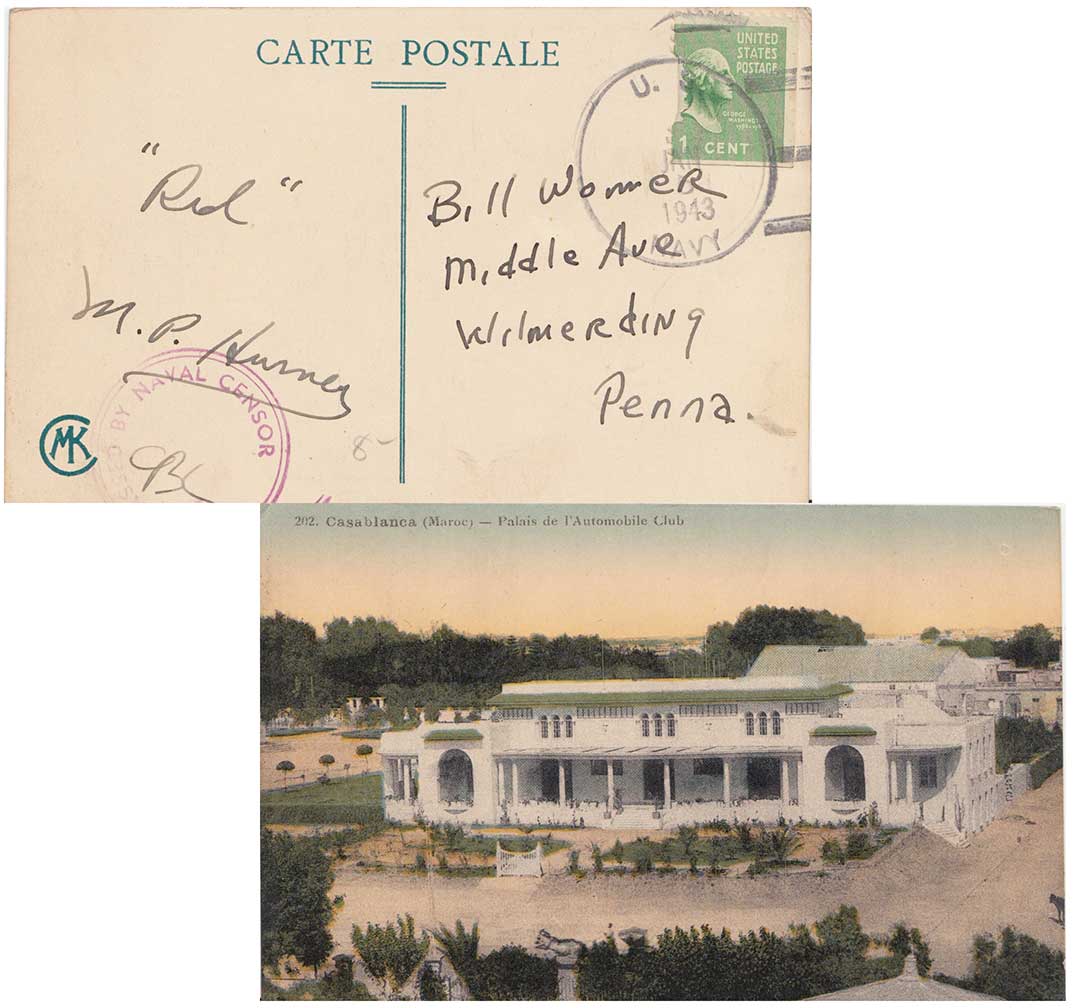 CARTE POSTALE
UNITED
STATES
POSTAGE
GEORGE
1 CENT
U.
JAN
1943
NAVY
"Red"
M. P. Hurney
Bill Wormer
Middle Ave
Wilmerding
Penna.
BY NAVAL CENSOR
MK
8-
202. Casablanca (Maroc) — Palais de l'Automobile Club